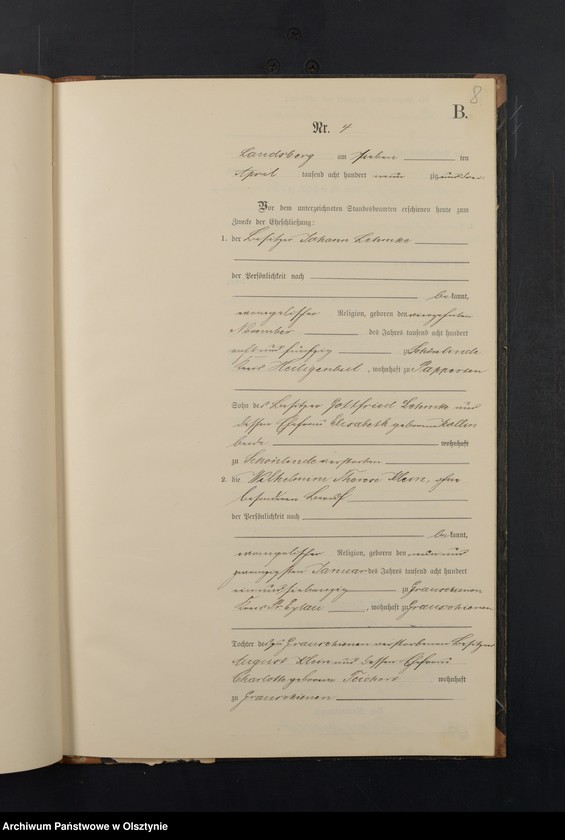 8
B.
Nr. 4
Landsberg am ten
April tausend acht hundert neun zig und
Vor dem unterzeichneten Standesbeamten erschienen heute zum
Zwecke der Eheschließung:
1. der Besitzer Johann Lemke
der Persönlichkeit nach
be kannt,
evangelischer Religion, geboren den
November des Jahres tausend acht hundert
acht und fünfzig zu Schönlinde
Kreis Heiligenbeil, wohnhaft zu Papperten
Sohn des Besitzer Gottfried Lemke und
dessen Ehefrau Elisabeth geborene
beide wohnhaft
zu Schönlinde verstorben
2. die Wilhelmine Therese Klein, ohne
besonderen Beruf
der Persönlichkeit nach
be kannt,
evangelischer Religion, geboren den neun und
zwanzigsten Januar des Jahres tausend acht hundert
ein und siebenzig zu
Kreis Pr. Eylau, wohnhaft zu
Tochter des zu verstorbenen Besitzer
August Klein und dessen Ehefrau
Charlotte geborene Teichert wohnhaft
zu
Archiwum Państwowe w Olsztynie